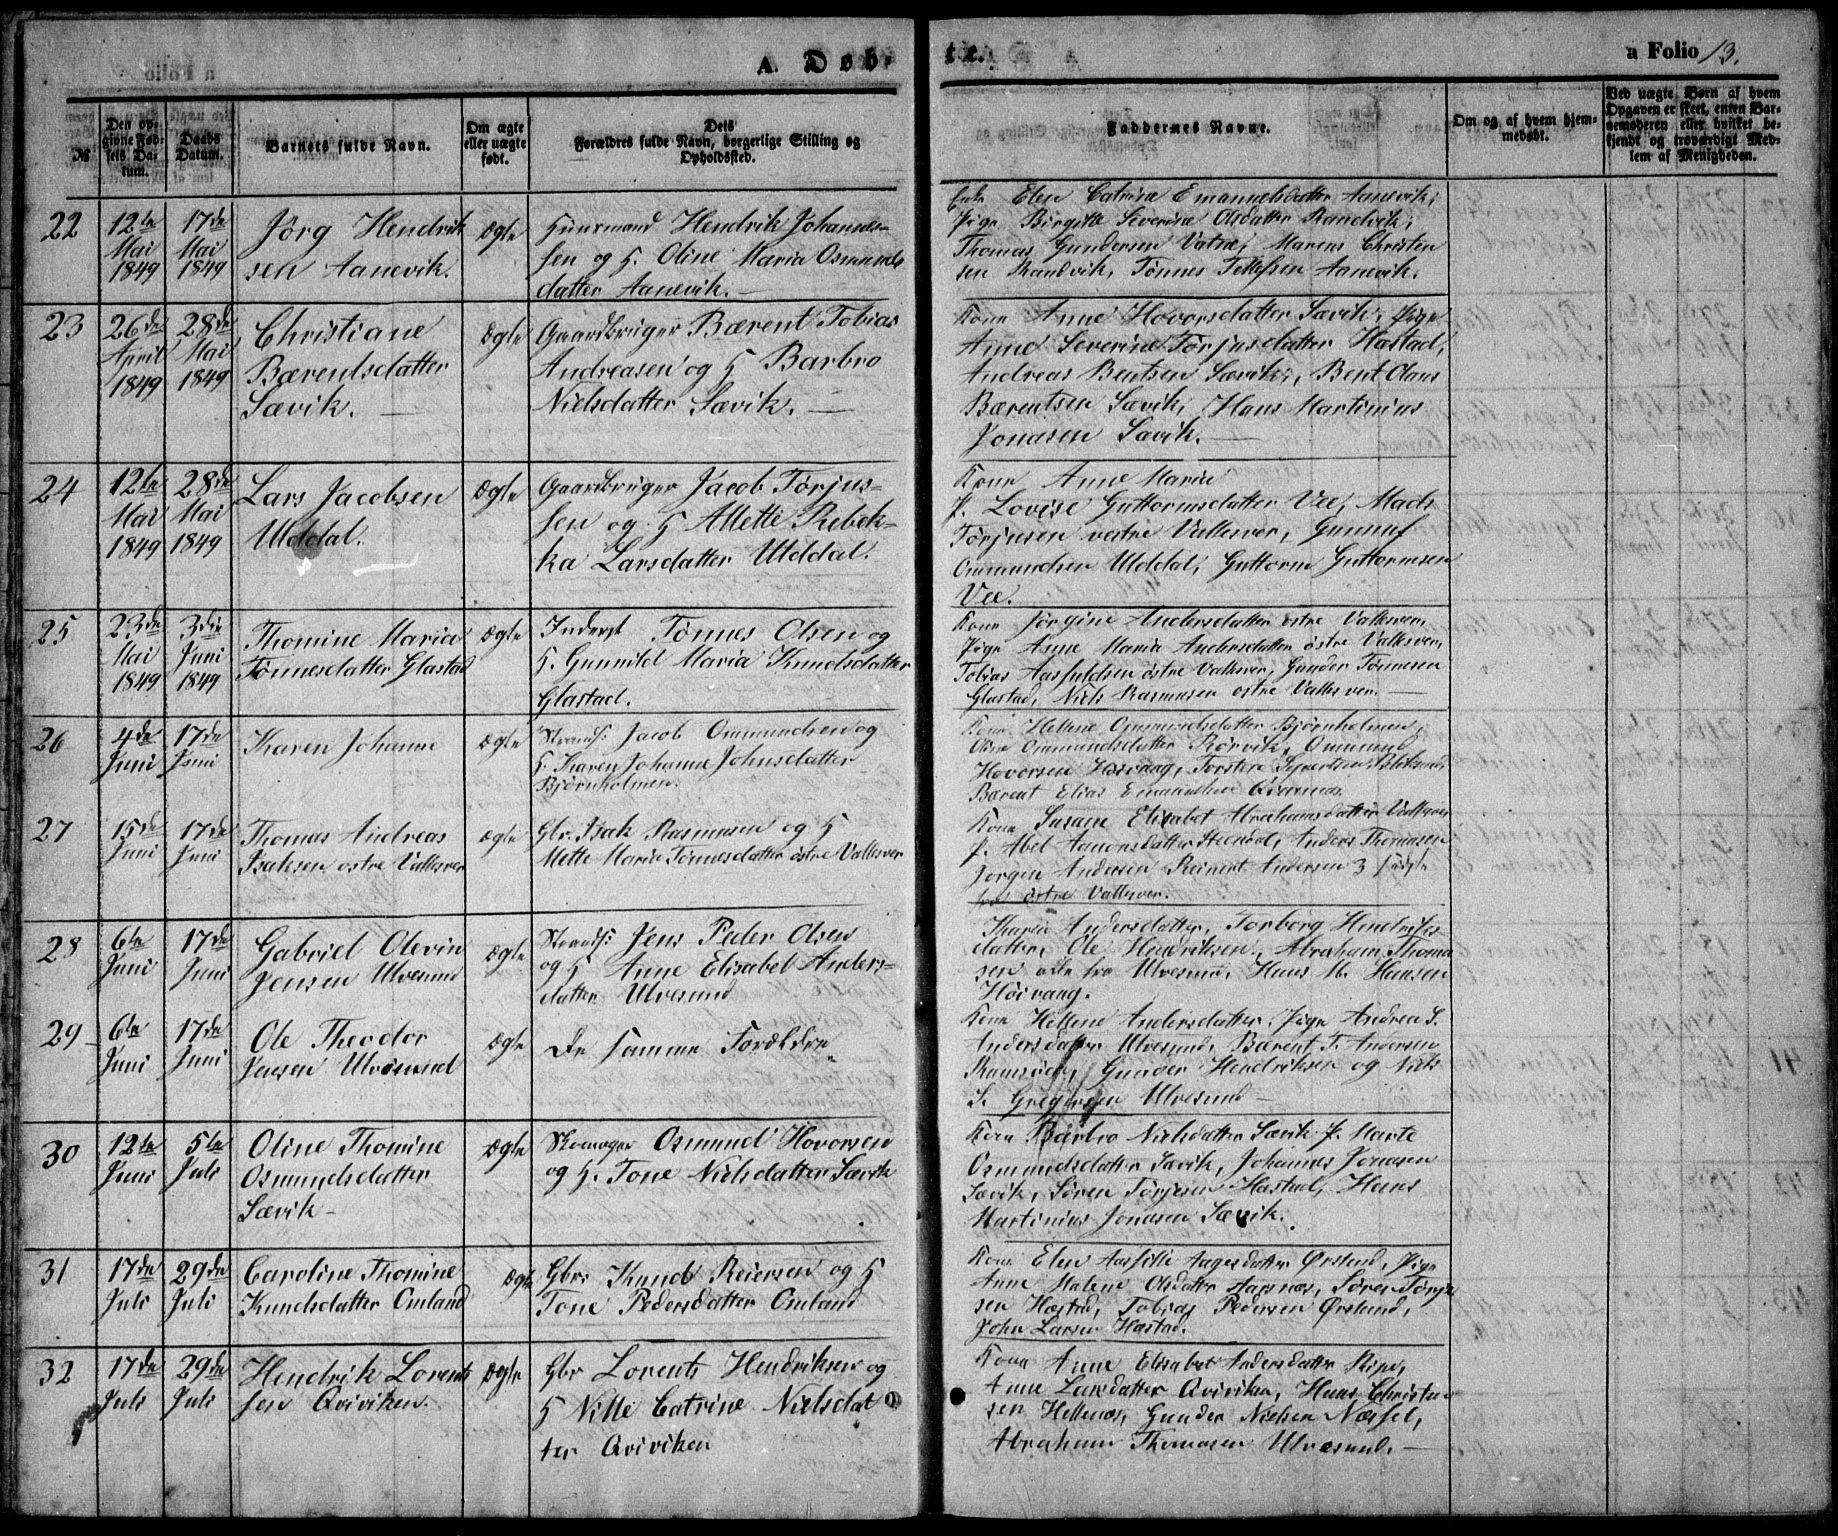 A. Døb-
te.
a Folio 13.
№
Den op-
givne Fød-
sels Da-
tum.
Daabs
Datum.
Barnets fulde Navn.
Om ægte
eller uægte
født.
Dets
Forældres fulde Navn, borgerlige Stilling og
Opholdssted.
Faddernes Navne.
Om og af hvem hjem-
medøbt.
Ved uægte Børn af hvem
Opgaven er skeet, enten Bar-
nemoderen eller hvilket be-
kjendt og troværdigt Med-
lem af Menigheden.
22
12te
Mai
1849
17de
Mai
1849
Jörg Hendrik
sen Aanevik.
Ægte
Huusmand Hendrik Johannes-
sen og H. Oline Maria Osmunds
datter Aanevik.
Enke Elen Catrine Emanuelsdatter Aanevik;
Pige Birgitte Severine Olsdatter Randvik;
Thomas Gundersen Vatne; Marcus Christen
sen Randvik, Tønnes Tellefsen Aanevik.
23
26de
April
1849
28de
Mai
1849
Christiane
Bærentsdatter
Sævik.
Ægte
Gaardbruger Bærent Tobias
Andreasen og H Barbro
Nielsdatter Sævik.
Kone Anne Hovorsdatter Sævik, Pige
Anne Severine Torjusdatter Hæstad,
Andreas Bentsen Sævik, Bent Olaus
Bærentsen Sævik, Hans Martinius
Jonasen Sævik.
24
12te
Mai
1849
28de
Mai
1849
Lars Jacobsen
Uddal.
Ægte
Gaardbruger Jacob Torjus-
sen og H Allette Rebek-
ka Larsdatter Uddal.
Kone Anne Maria
P. Lovise Guttormsdatter Vee, Mads
Torjusen vestre Vallesver, Gunnuf
Ommundsen Uddal, Guttorm Guttormsen
Vee.
25
23de
Mai
1849
3die
Juni
1849
Thomine Maria
Tønnesdatter Glastad
Ægte
Inderst Tønnes Olsen og
H. Gunnild Maria Knudsdatter
Glastad.
Kone Jørgine Andersdatter østre Vallesver,
Pige Anne Maria Andersdatter østre Vallesver,
Tobias Aasuldsen østre Vallesver, Gunder Tønnesen
Glastad, Niels Rasmusen østre Vallesver.
26
4de
Juni
17de
Juni
Karen Johanne
Ægte
Strands: Jacob Ommundsen og
H Karen Johanne Johnsdatter
Bjørnholmen.
Kone Hellene Ommundsdatter Bjørnholmen;
Oline Ommundsdatter Rørvik, Ommund
Hovorsen Høivang, Torsten Syvertsen
Bærent Elias Emanuelsen
27
15de
Juni
17de
Juni
Thomas Andreas
Isaksen østre Vallesver
Ægte
Gbr. Isak Rasmusen og H
Mette Maria Tønnesdatter østre Vallesver
Kone Susane Elisabet Abrahamsdatter Vallesver
P. Abel Aanonsdatter Anders Thomasen
Jørgen Andersen Reinert Andersen 3 sidste
fra østre Vallesver.
28
6te
Juni
17de
Juni
Gabriel Olevin
Jensen Ulvesund
Ægte
Strands: Jens Peder Olsen
og H Anne Elisabet Anders-
datter Ulvesund
Karen Andersdatter, Torborg Hendriks-
datter, Ole Hendriksen, Abraham Thoma
sen alle fra Ulvesund, Hans M. Hansen
Høivang.
29
6te
Juni
17de
Juni
Ole Theodor
Jensen Ulvesund
Ægte
De samme Forældre
Kone Hellene Andersdatter, Pige Andrea S.
Andersdatter Ulvesund, Bærent T. Andersen
Ramsøen, Gunder Hendriksen og Niels
S. Gregersen Ulvesund
30
12te
Juni
5te
Juli
Oline Thomine
Osmundsdatter
Sævik
Ægte
Skomager Osmund Hovorsen
og H. Tone Nielsdatter Sævik
Kone Barbro Nielsdatter Sævik P. Marte
Osmundsdatter Sævik, Johannes Jonasen
Sævik, Søren Torjusen Hæstad, Hans
Martinius Jonasen Sævik.
31
17de
Juli
29de
Juli
Caroline Thomine
Knudsdatter Omland
Ægte
Gbr: Knud Reiersen og H
Tone Pedersdatter Omland
Kone Elen Aasille Aagesdatter Ørslund, Pige
Anne Malene Olsdatter Søren Torju
sen Hæstad, Tobias Pedersen Ørslund,
John Larsen Hæstad.
32
17de
Juli
29de
Juli
Hendrik Lorents
sen Qviviken.
Ægte
Gbr Lorents Hendriksen og
H Nille Catrine Nielsdat
ter Qviviken
Kone Anne Elisabet Andersdatter Ripe,
Anne Larsdatter Qviviken, Hans Christen
sen Hellenes, Gunder Nielsen Næsset,
Abraham Thomasen Ulvesund.